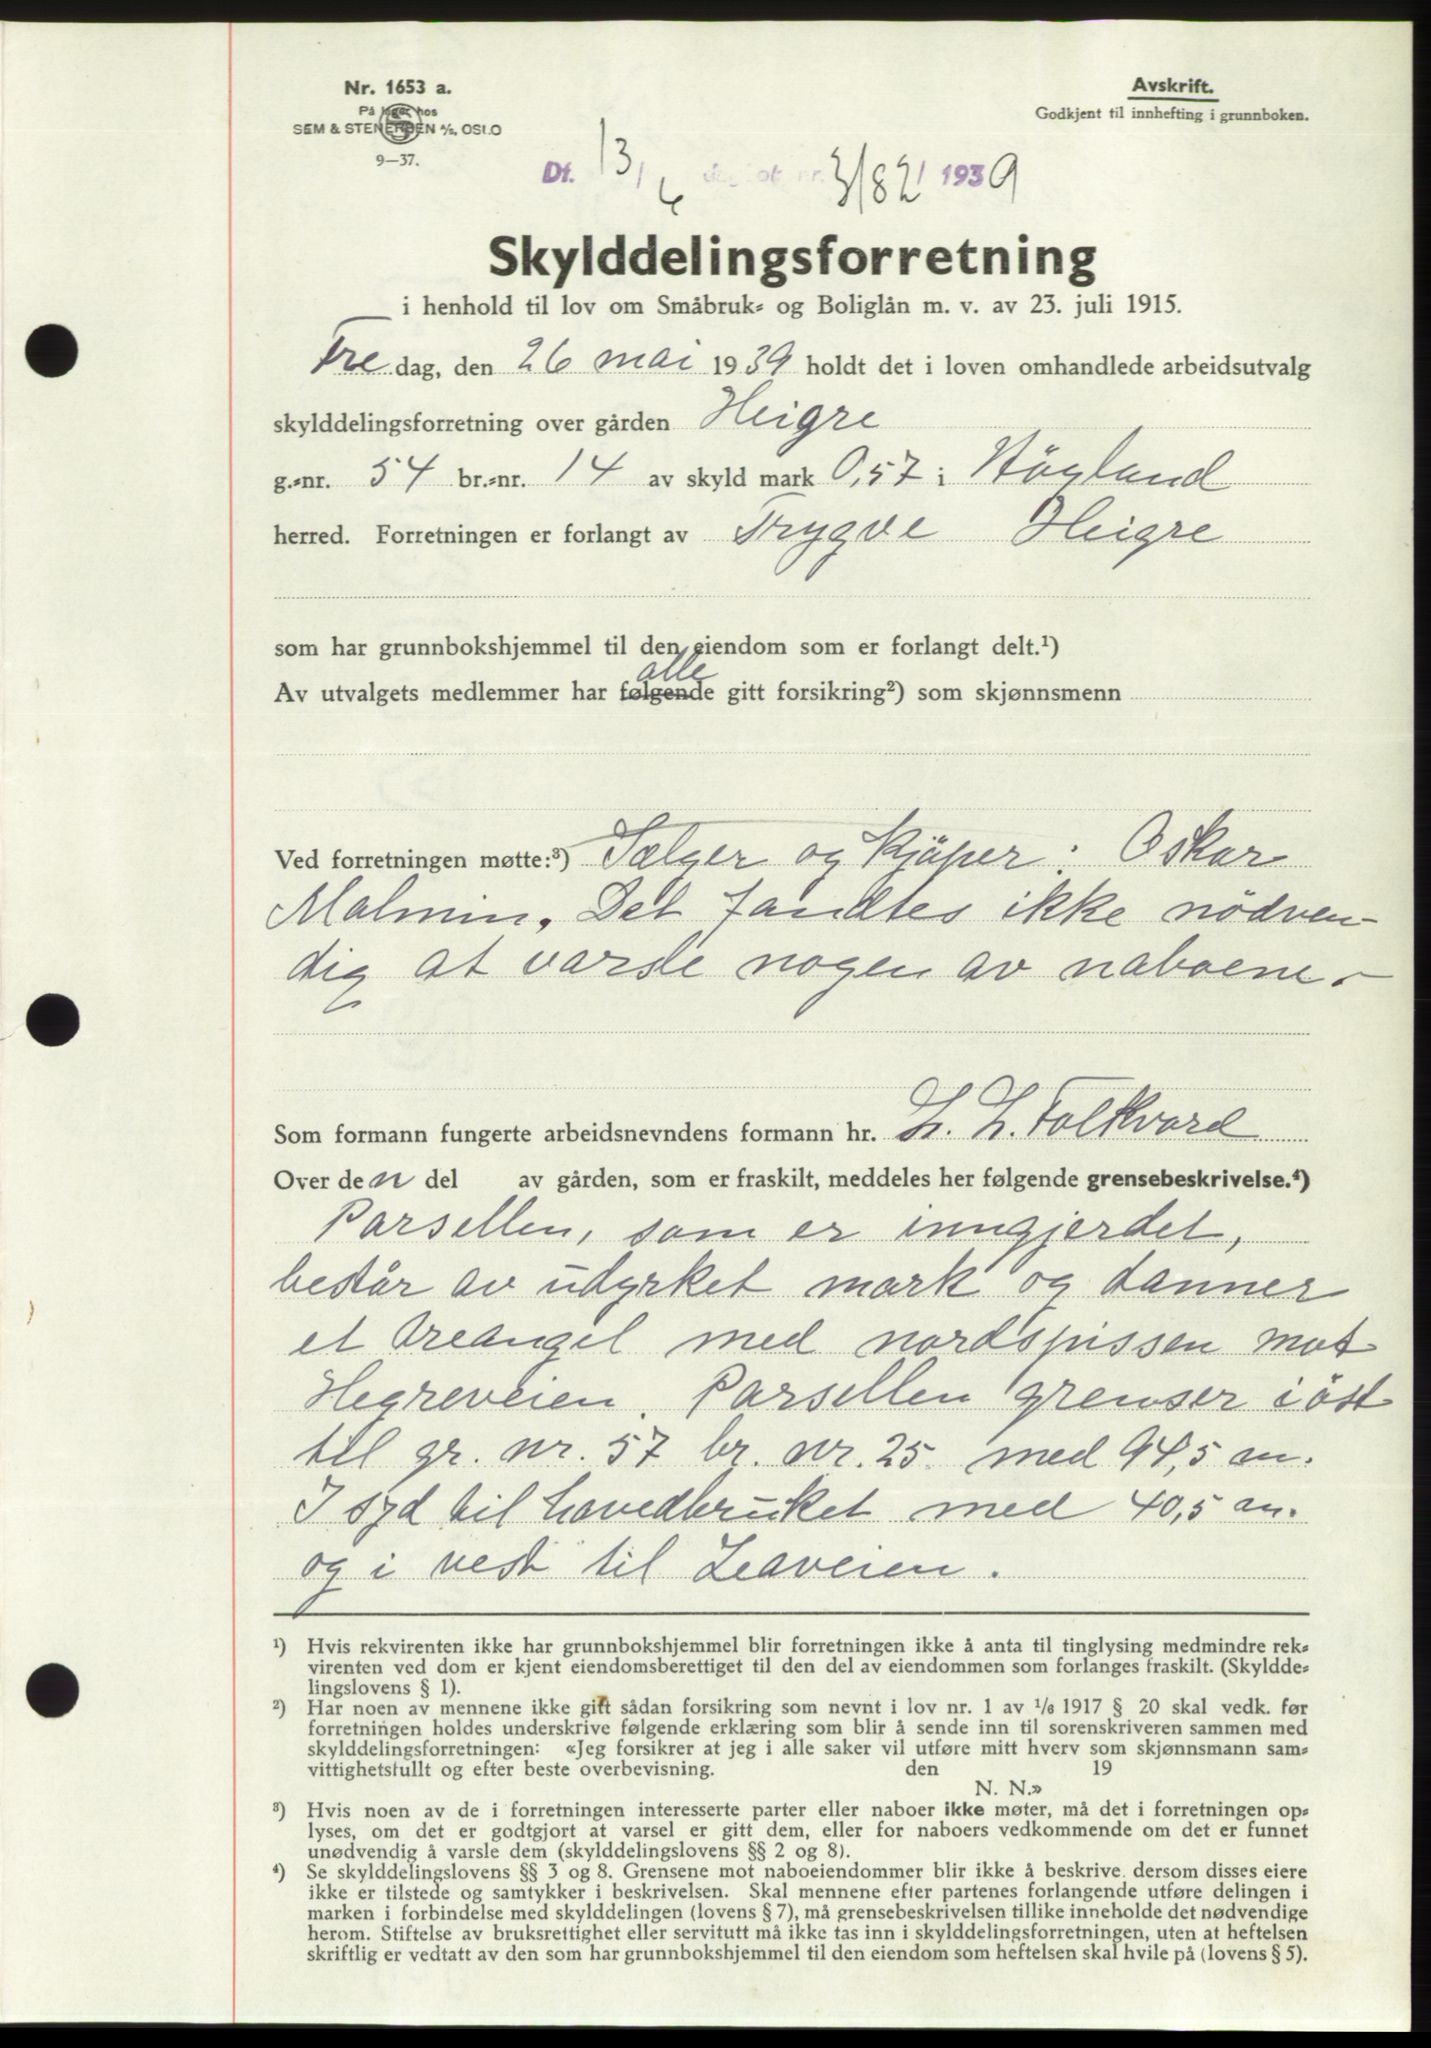 Nr. 1653 a.
På lager hos
SEM & STENERSEN A/S, OSLO
9—37.
Avskrift.
Godkjent til innhefting i grunnboken.
Dt. 13/6 dagbok nr. 3182/1939
Skylddelingsforretning
i henhold til lov om Småbruk- og Boliglån m. v. av 23. juli 1915.
Fre dag, den 26 mai 1939 holdt det i loven omhandlede arbeidsutvalg
skylddelingsforretning over gården Heigre
g.-nr. 54 br.-nr. 14 av skyld mark 0,57 i Høyland
herred. Forretningen er forlangt av Trygve Heigre
som har grunnbokshjemmel til den eiendom som er forlangt delt.¹)
alle
Av utvalgets medlemmer har følgende gitt forsikring²) som skjønnsmenn
Ved forretningen møtte:³) Sælger og kjøper: Oskar
Malmin. Det fandtes ikke nödven-
dig at varsle nogen av naboene.-
Som formann fungerte arbeidsnevndens formann hr. L. L. Folkvord
Over den del av gården, som er fraskilt, meddeles her følgende grensebeskrivelse.⁴)
Parsellen, som er inngjerdet,
består av udyrket mark og danner
et treangel med nordspissen mot
Hegreveien. Parsellen grenser i öst
til gr. nr. 57 br. nr. 25 med 94,5 m.
I syd til hovedbruket med 40,5 m.
og i vest til Leaveien.
¹) Hvis rekvirenten ikke har grunnbokshjemmel blir forretningen ikke å anta til tinglysing medmindre rek-
virenten ved dom er kjent eiendomsberettiget til den del av eiendommen som forlanges fraskilt. (Skyldde-
lingslovens § 1).
²) Har noen av mennene ikke gitt sådan forsikring som nevnt i lov nr. 1 av 1/6 1917 § 20 skal vedk. før
forretningen holdes underskrive følgende erklæring som blir å sende inn til sorenskriveren sammen med
skylddelingsforretningen: «Jeg forsikrer at jeg i alle saker vil utføre mitt hverv som skjønnsmann sam-
vittighetsfullt og efter beste overbevisning. den 19
N. N.»
³) Hvis noen av de i forretningen interesserte parter eller naboer ikke møter, må det i forretningen op-
lyses, om det er godtgjort at varsel er gitt dem, eller for naboers vedkommende om det er funnet
unødvendig å varsle dem (skylddelingslovens §§ 2 og 8).
⁴) Se skylddelingslovens §§ 3 og 8. Grensene mot naboeiendommer blir ikke å beskrive dersom disses eiere
ikke er tilstede og samtykker i beskrivelsen. Skal mennene efter partenes forlangende utføre delingen i
marken i forbindelse med skylddelingen (lovens § 7), må grensebeskrivelsen tillike inneholde det nødvendige
herom. Stiftelse av bruksrettighet eller servitutt må ikke tas inn i skylddelingsforretningen, uten at heftelsen
skriftlig er vedtatt av den som har grunnbokshjemmel til den eiendom som heftelsen skal hvile på (lovens § 5).